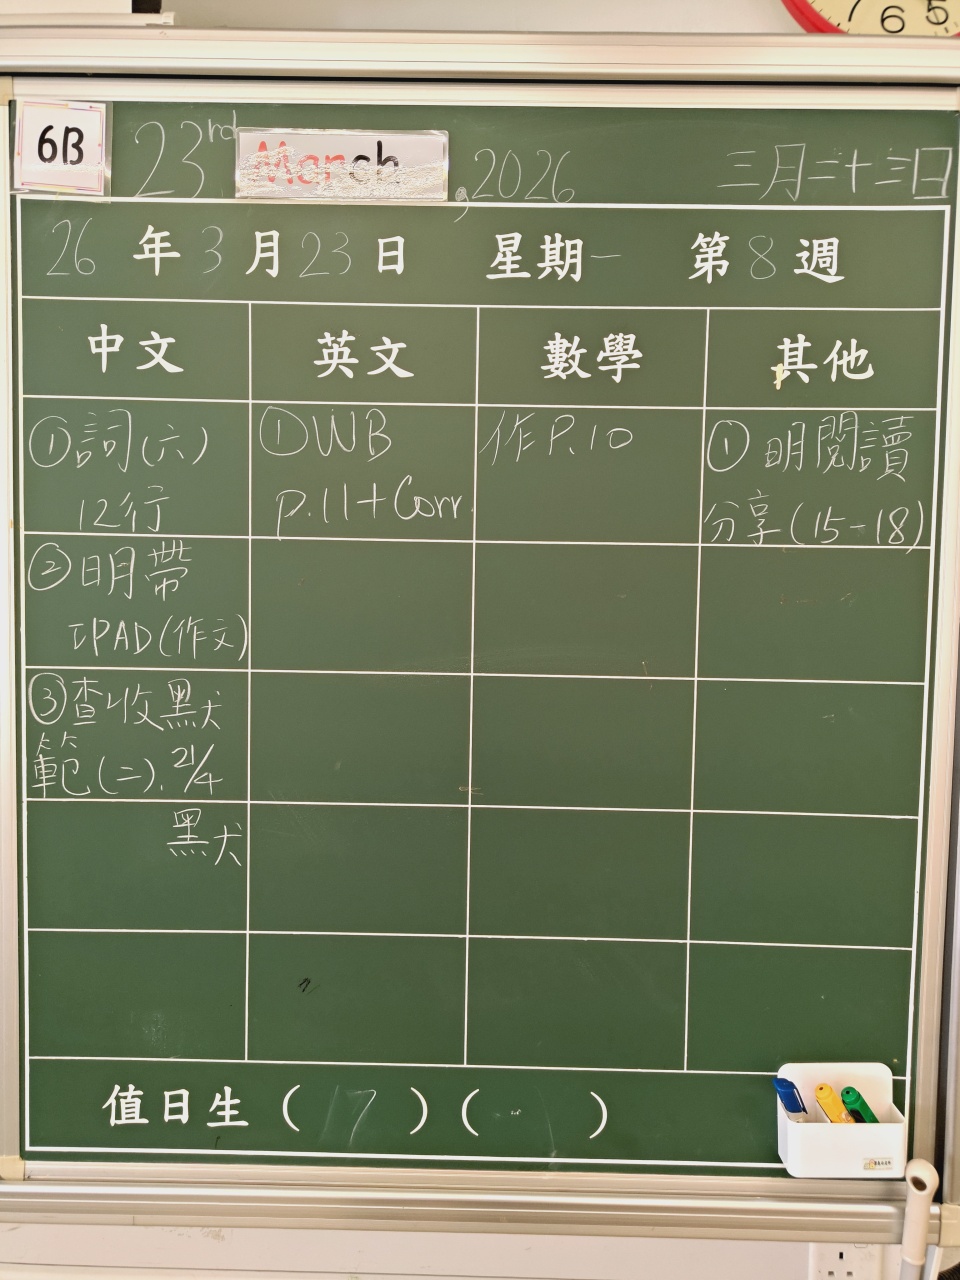 7 6 5
6B
23rd March, 2026
三月二十三日
26年3月23日 星期一 第8週
中文
英文
數學
其他
①詞(六)
12行
①WB
p.11+Corr
作P.10
①明閱讀
分享(15-18)
②明帶
IPAD(作文)
③查收默
範(二). 21/4
默
值日生(17)( )